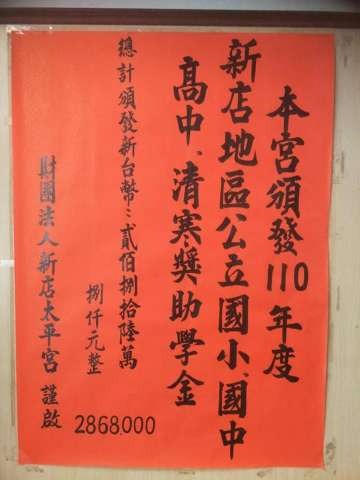 本宮頒發110年度
新店地區公立國小、國中
高中、清寒獎助學金
總計頒發新台幣:貳佰捌拾陸萬
捌仟元整
2868,000
財團法人新店太平宮 謹啟